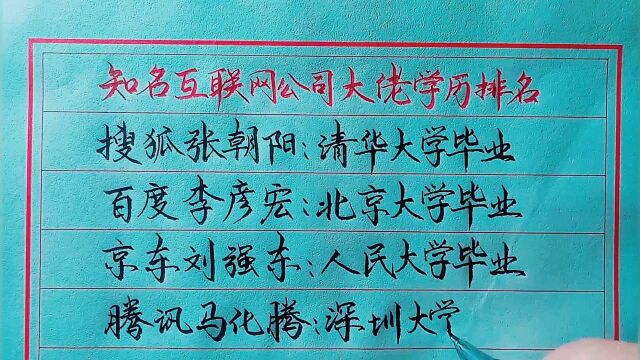 知名互联网公司大佬学历排名
搜狐张朝阳:清华大学毕业
百度李彦宏:北京大学毕业
京东刘强东:人民大学毕业
腾讯马化腾:深圳大学